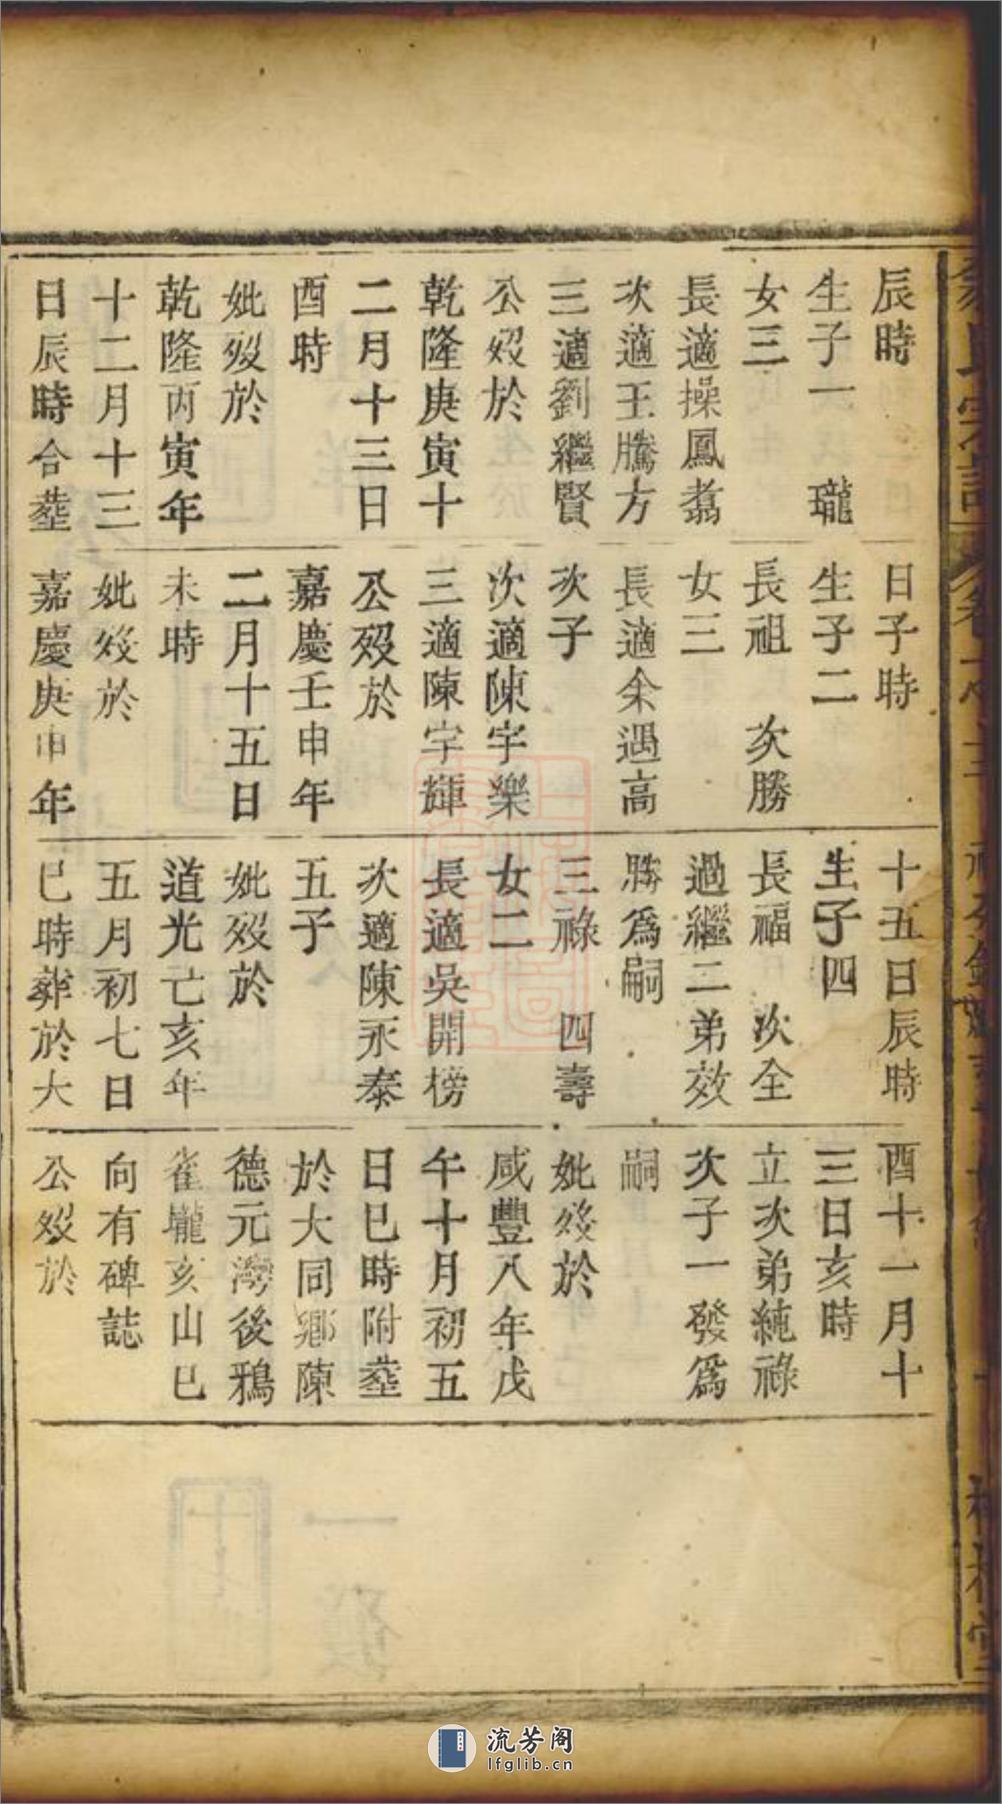 辰時
生子一　瓏
女三
長適操鳳翥
次適王騰方
三適劉繼賢
公殁於
乾隆庚寅十
二月十三日
酉時
妣殁於
乾隆丙寅年
十二月十三
日辰時合塟
日子時
生子二
長祖　次勝
女三
長適余遇高
次子
次適陳宇樂
三適陳宇輝
公殁於
嘉慶壬申年
二月十五日
未時
妣殁於
嘉慶庚申年
十五日辰時
生子四
長福　次全
過繼二弟效
勝爲嗣
三祿　四壽
女二
長適吳開榜
次適陳永泰
五子
妣殁於
道光亡亥年
五月初七日
巳時葬於大
酉十一月十
三日亥時
立次弟純祿
次子一發爲
嗣
妣殁於
咸豐八年戊
午十月初五
日巳時附塟
於大同鄉陳
德元灣後鴉
雀壠亥山巳
向有碑誌
公殁於
流芳阁
lfglib.cn